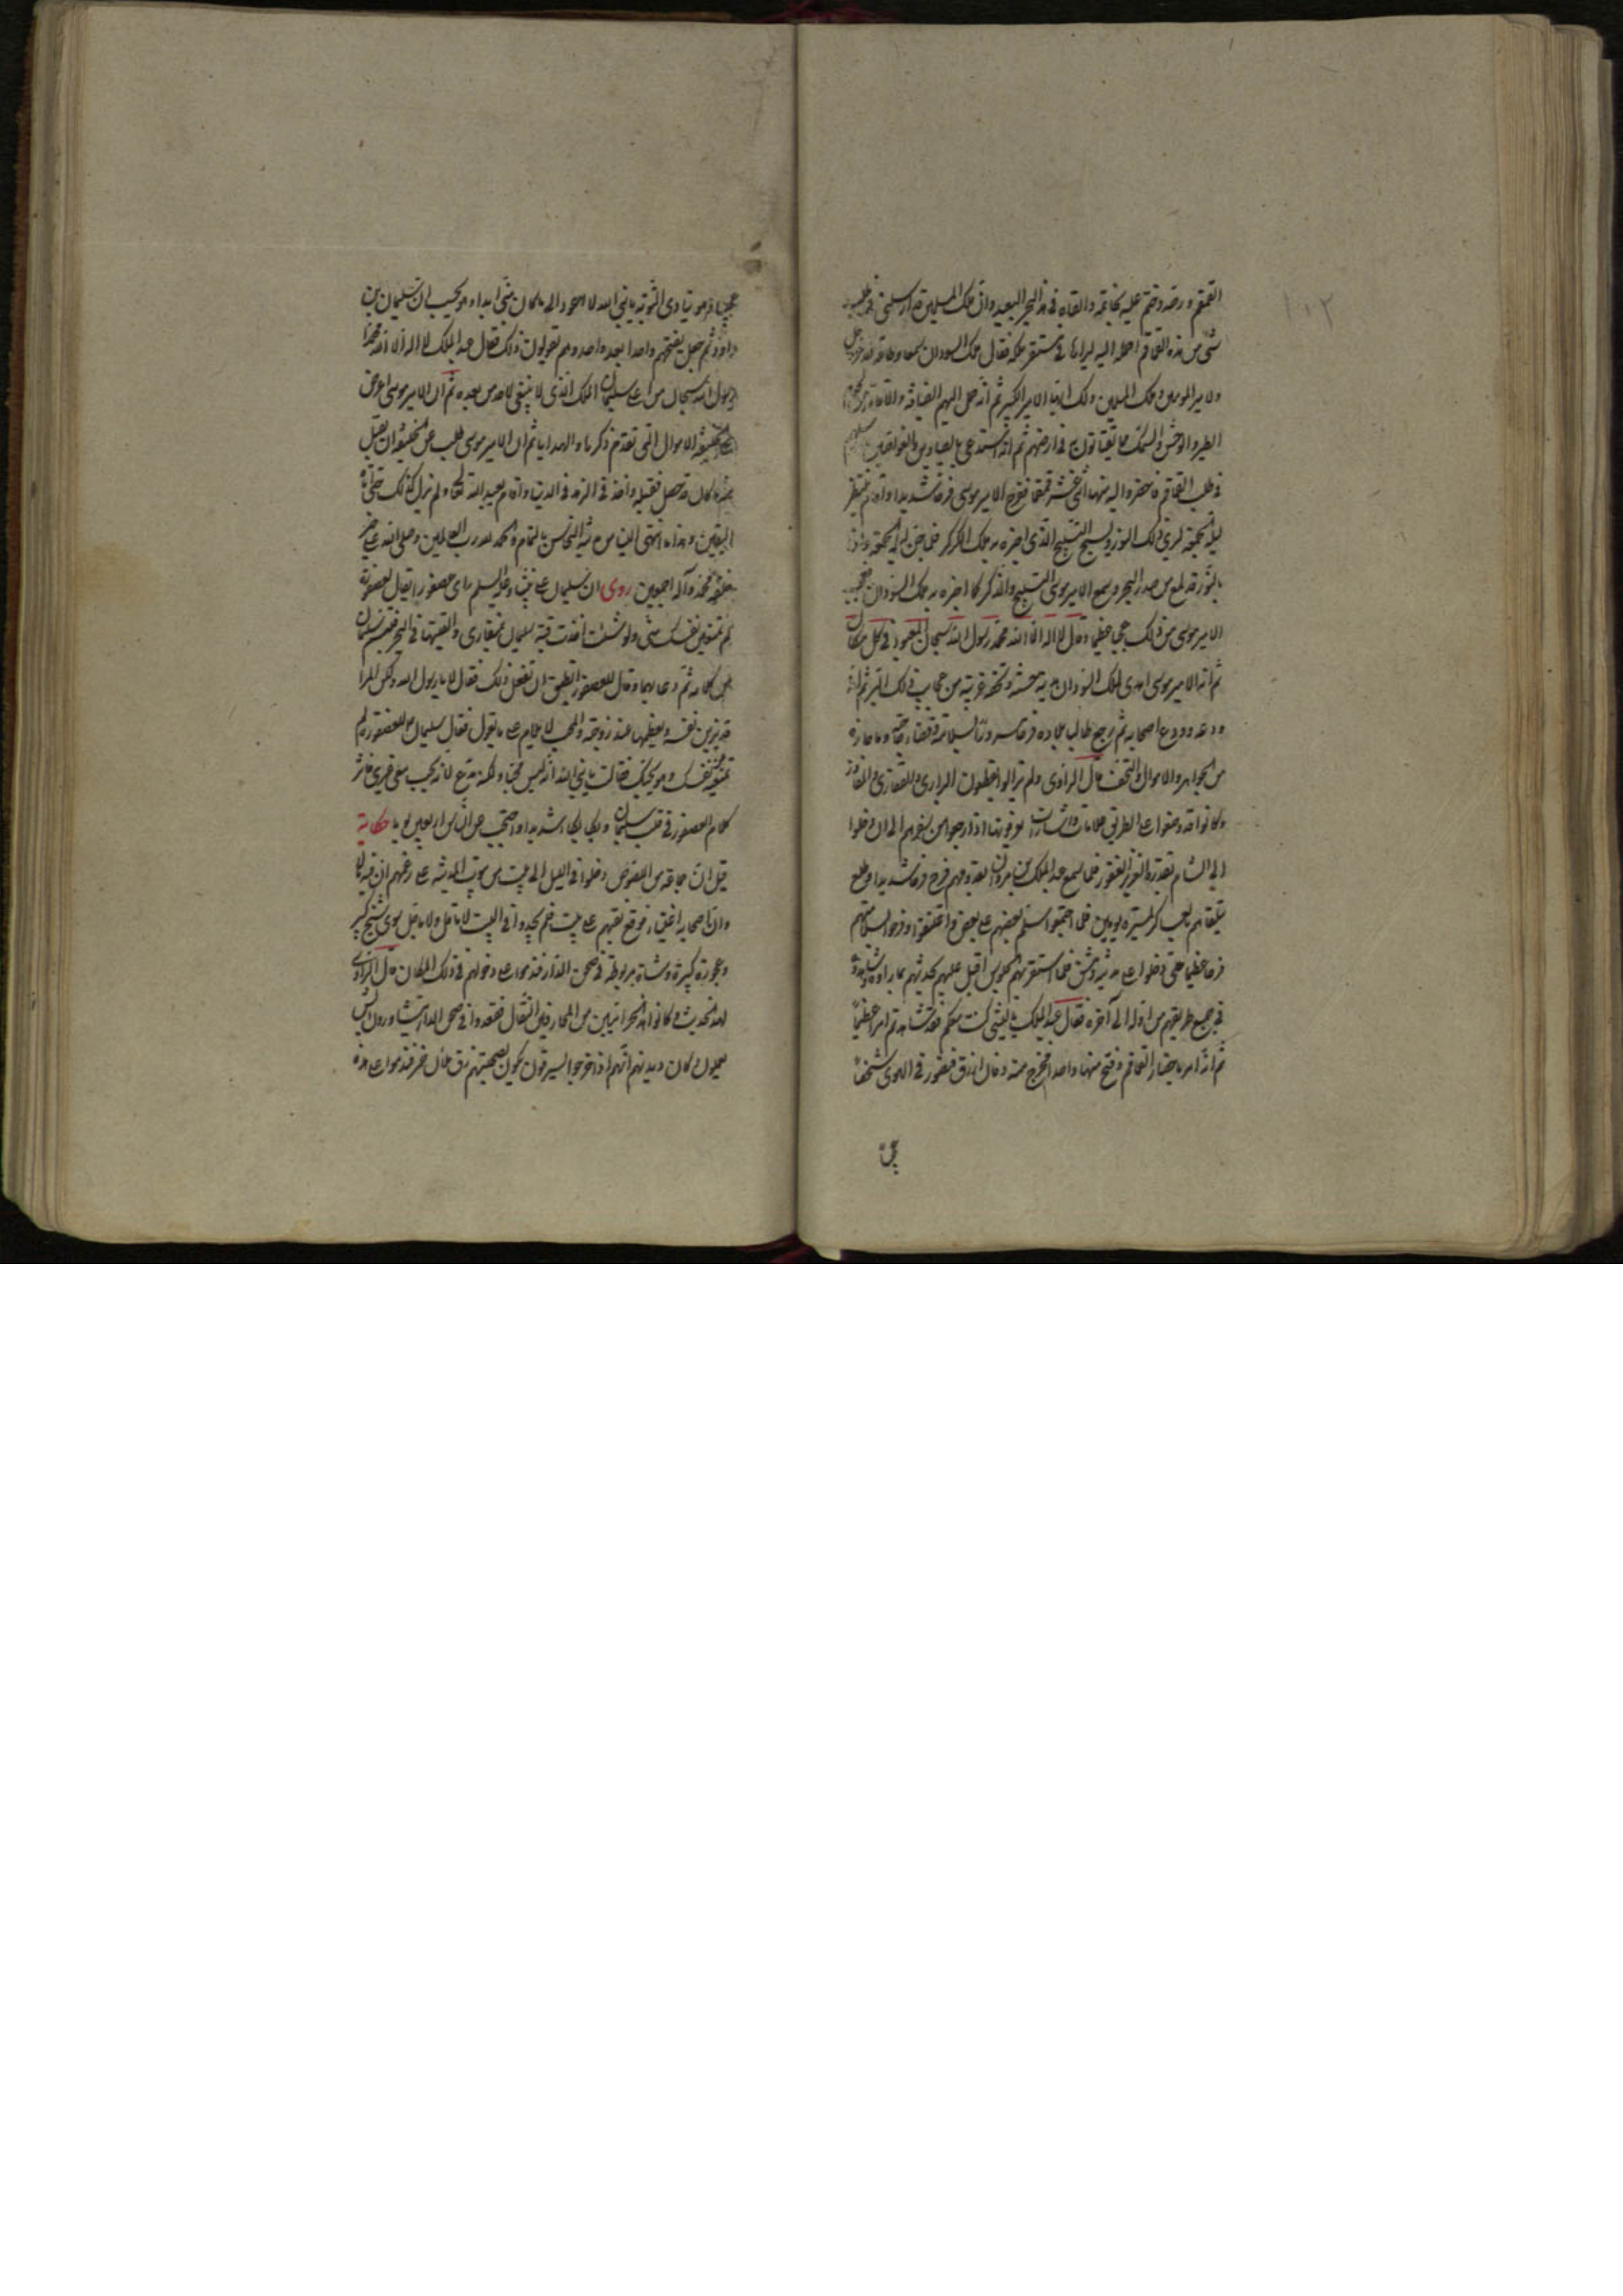 القمقم ورصه وختم عليه بخاتمه والقاه في هذا البحر البعيد وان ملك المسلمين قد ارسلني في طلب
شي من هذه القماقم احمله اليه ليراها في مستقر ملكه فقال ملك السودان سمعا وطاعة لله عز وجل
ولامير المومنين وملك المسلمين ولك ايها الامير الكبير ثم انه حمل اليهم الضيافة والاقامة
الطير والوحش والسمك مما يقتاتون به في ارضهم ثم انه استدعى بالصيادين والغواصين
في طلب القماقم فاحضروا اليه منها اثني عشر قمقما ففرح الامير موسى فرحا شديدا واقام ينتظر
ليلة الجمعة ليرى ذلك النور ويسمع التسبيح الذي اخبره به ملك الكركر فلما جن ليلة الجمعة
بالنور قد طلع من صدر البحر وسمع الامير موسى التسبيح والذكر كما اخبره به ملك السودان فتعجب
الامير موسى من ذلك عجبا عظيما وقال لا اله الا الله محمد رسول الله سبحان المعبود في كل مكان
ثم انه الامير موسى اهدى لملك السودان هدية حسنة وتحفة غريبة من عجايب ذلك البر ثم انه
ودعه وودع اصحابه ثم رجع طالب بلاده فرحا مسرورا بسلامته وقضاء حاجته وما حازه
من الجواهر والاموال والتحف قال الراوي ولم يزالوا يقطعون البراري والقفاري والمفاوز
وكانوا قد وضعوا على الطريق علامات واشارات يعرفونها اذا رجعوا من سفرهم الى ان دخلوا
الى الشام بقدرة العزيز الغفور فلما سمع عبد الملك بن مروان بقدومهم فرح فرحا شديدا وطلع
يتلقاهم بالعساكر لمسيرة يومين فلما اجتمعوا سلم بعضهم على بعض واعتنقوا وفرحوا بسلامتهم
فرحا عظيما حتى دخلوا على مدينة دمشق فلما استقر بهم الجلوس اقبل عليهم يحدثهم بما راوه وشاهدوه
في جميع طريقهم من اوله الى آخره فقال عبد الملك يا ليتني كنت معكم فقد شاهدتم امرا عظيما
ثم انه امر باحضار القماقم وفتح منها واحدا فخرج منه دخان ازرق فتصور في الهوى شخصا
عجيبا وهو ينادي التوبة يا نبي الله لا اعود الى ما كان مني ابدا وهو يحسب ان سليمان بن
داوود ثم جعل يفتحهم واحدا بعد واحد وهم يقولون ذلك فقال عبد الملك لا اله الا الله محمدا
رسول الله سبحان من اعطى سليمان الملك الذي لا ينبغي لاحد من بعده ثم ان الامير موسى اعرض
على الخليفة الاموال التي تقدم ذكرها والهدايا ثم ان الامير موسى طلب من الخليفة ان يقبل
هذه كان قد حصل فقبله واخذ في الزهد في الدنيا واقام يعبد الله تعالى ولم يزل كذلك حتى اتاه
اليقين وهذا ما انتهى الينا من مدينة النحاس بالتمام والحمد لله رب العالمين وصلى الله على خير
خلقه محمد وآله اجمعين روى ان سليمان على نبينا وعليه السلم راى عصفورا يقول لعصفورة
لم تمنعين نفسك مني ولو شئت اخذت قبة سليمان بمنقاري والقيتها في البحر فتبسم سليمان
من كلامه ثم دعا بهما وقال للعصفور اتطيق ان تفعل ذلك فقال لا يا رسول الله ولكن المرء
قد يزين نفسه ويعظمها عند زوجته والمحب لا يلام على ما يقول فقال سليمان للعصفورة لم
تمنعيه نفسك وهو يحبك فقالت يا نبي الله انه ليس محبا ولكنه مدع لانه يحب معي غيري فاثر
كلام العصفورة في قلب سليمان وبكى بكاء شديدا واحتجب عن الناس اربعين يوما حكاية
قيل ان جماعة من اللصوص دخلوا في الليل الى بيت من بيوت المدينة على زعمهم ان فيه مالا
وان اصحابه اغنياء فوقع نقبهم على بيت فلم يجدوا في البيت لا ناقل ولا ماقل سوى شيخ كبير
وعجوزة كبيرة وشاة مربوطة في صحن الدار فندموا على دخولهم في ذلك المكان قال الراوي
لهذا الحديث وكانوا هذه الحرامية من المحارفين الثقال فقعدوا في صحن الدار يتشاورون ايش
يعملون وكان ديدنهم انهم اذا خرجوا ليسرقون يكون بصحبتهم زق ملان خمر فندموا على هذه